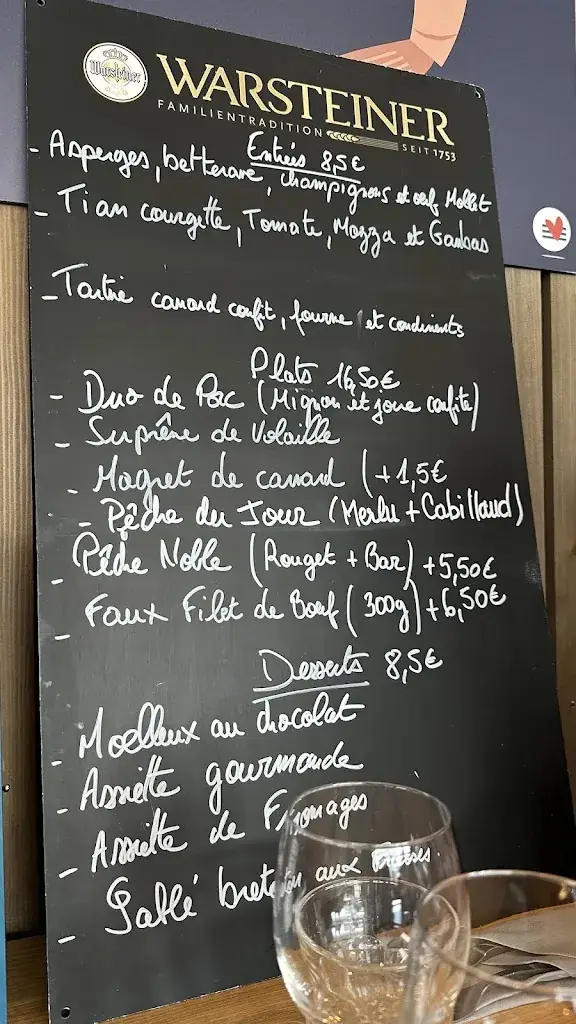 Warsteiner
WARSTEINER
FAMILIENTRADITION SEIT 1753
Entrées 8,5€
- Asperges, betterave, champignons et oeuf Mollet
- Tian courgette, Tomate, Mozza et Gambas
- Tartine canard confit, fourme et condiments
Plats 16,50€
- Duo de Porc (Mignon et joue confite)
- Suprême de Volaille
- Magret de canard (+1,5€
- Pêche du Jour (Merlu + Cabillaud)
- Pêche Noble (Rouget + Bar) +5,50€
- Faux Filet de Boeuf (300g) +6,50€
Desserts 8,5€
- Moelleux au chocolat
- Assiette gourmande
- Assiette de Fromages
- Sablé breton aux fraises.